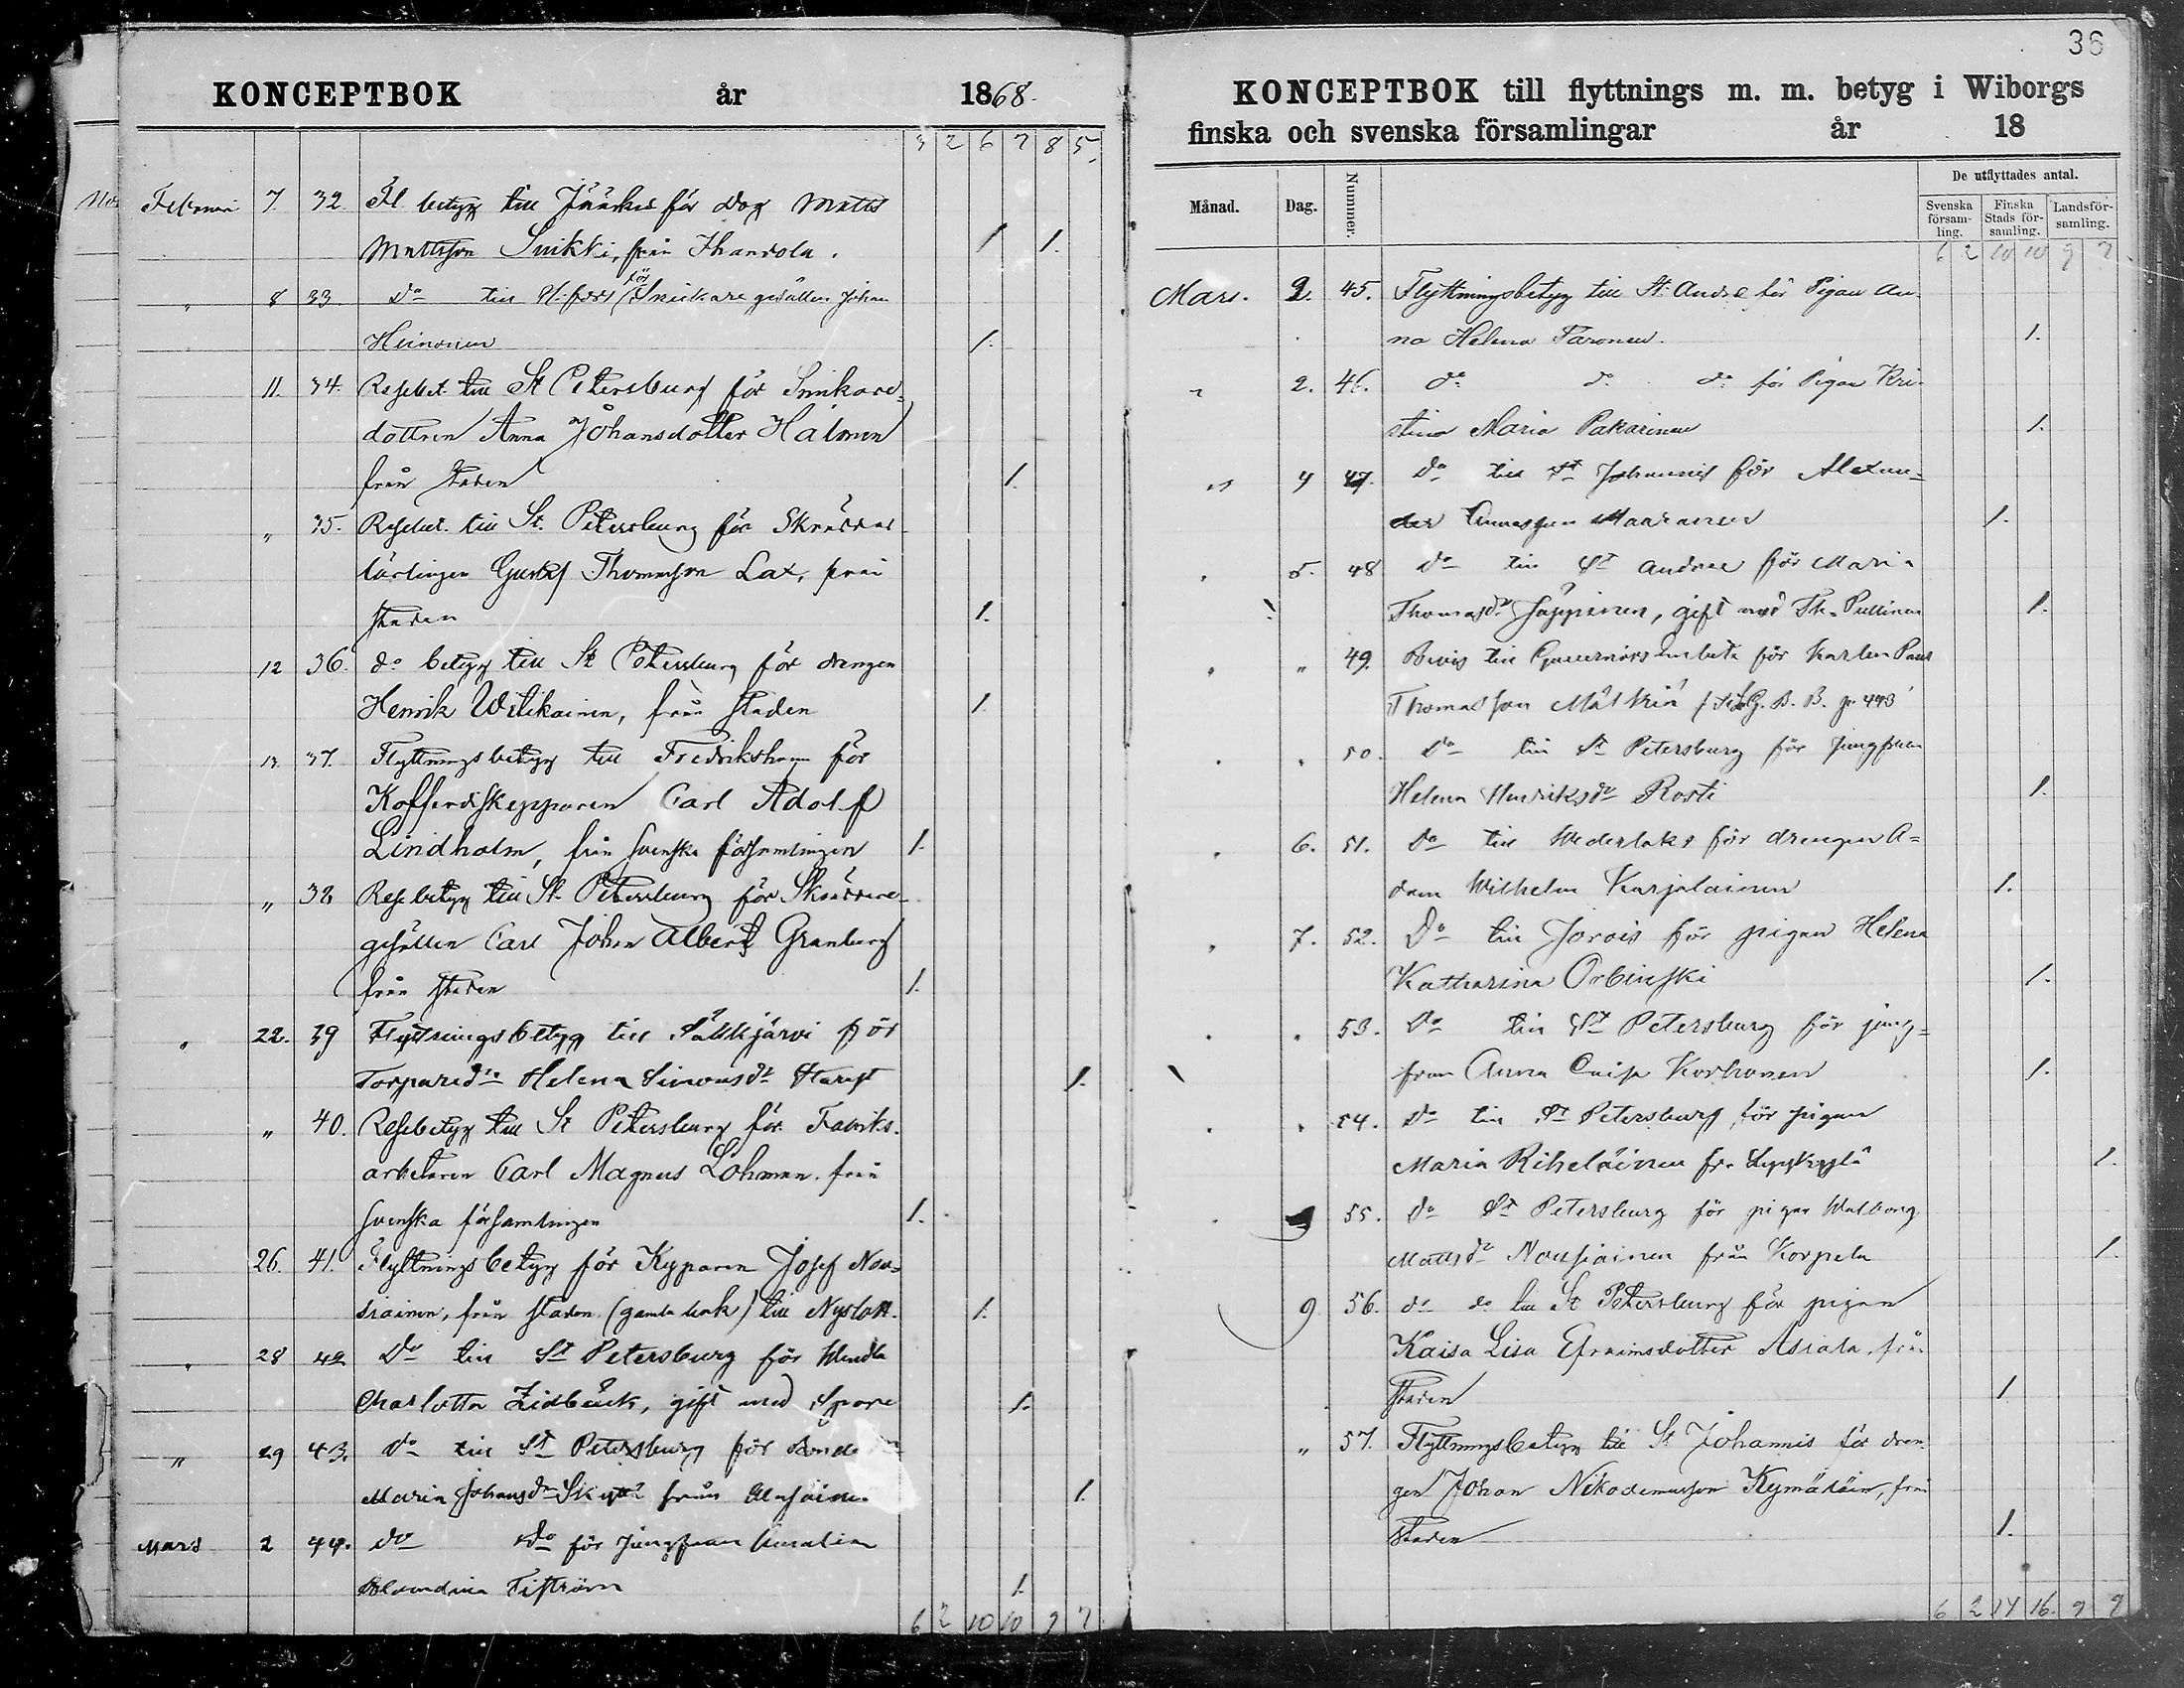 KONCEPTBOK år 1868.
3 2 6 7 8 5.
Februari 7. 32. Fl. betyg till Jääskis för Matts
Mattsson Suikki, från Ihantola. 1 1.
" 8 33. Do till H:fors för Snickare gesällen Johan
Heinonen 1.
11. 34. Resebet. till St Petersburg för Snikare-
dottren Anna Johansdotter Halonen
från staden 1.
" 35. Resebet. till St. Petersburg för Skräddar
lärlingen Gustaf Thomasson Lax, från
staden 1.
12 36. do betyg till St Petersburg för drengen
Henrik Wilikainen, från staden 1.
13. 37. Flyttningsbetyg till Fredrikshamn för
Kofferdiskepparen Carl Adolf
Lindholm, från svenska församlingen 1.
" 38 Resebetyg till St. Petersburg för Skräddare-
gesällen Carl Johan Albert Granberg
från staden 1.
" 22. 39 Flyttningsbetyg till Säkkjärvi för
Torparedn Helena Simonsdr 1.
" 40. Resebetyg till St Petersburg för Fabriks-
arbetaren Carl Magnus Lohman från
svenska församlingen 1.
26. 41. Flyttningsbetyg för Kyparen Josef Nou-
siainen, från staden (gamla) till Nyslott. 1.
" 28 42 Do till St Petersburg för Wendla
Charlotta Lidbäck, gift med 1.
" 29 43. Do till St Petersburg för Bonde
Maria Johansdr från 1.
Mars 2 44. Do Do för Jungfrun Amalia
Alexandrina Fiström 1.
6 2 10 10 9 7.
36
KONCEPTBOK till flyttnings m. m. betyg i Wiborgs
finska och svenska församlingar år 18
Månad. Dag. Nummer. De utflyttades antal.
Svenska församling. Finska Stads församling. Landsförsamling.
6 2 10 10 9 7
Mars. 2. 45. Flyttningsbetyg till St. Andre för Pigan An-
na Helena Paronen. 1.
" 2. 46. do do do för Pigan Kri-
stina Maria Pakarinen 1.
" 4 47. Do till St Johannis för Alexan-
der Maaranen 1.
" 5. 48 Do till St Andree för Maria
Thomasdr Jäppinen, gift med Th. Pullinen 1.
" " 49. Bevis till Guvernörs embete för karlen Paul
Thomasson Mätkiä
" " 50. Do till St Petersburg för jungfrun
Helena Henriksdr Rosti 1.
" 6. 51. Do till Wederlaks för drengen A-
dam Wilhelm Karjalainen 1.
" 7. 52. Do till Jorois för pigan Helena
Katharina Orbinski 1.
" " 53. Do till St Petersburg för jung-
frun Anna Caisa Korhonen 1.
" " 54. Do till St Petersburg för pigan
Maria Riheläinen fr. 1.
" 55. Do St Petersburg för pigan Walborg
Mattsdr Nousiainen från Korpela 1.
9 56. do do till St Petersburg för pigan
Kaisa Lisa Efraimsdotter Asiala, från
staden 1
" 57. Flyttningsbetyg till St. Johannis för dren-
gen Johan Nikodemusson Kymäläin, från
staden 1.
6 2 14 16. 9 9